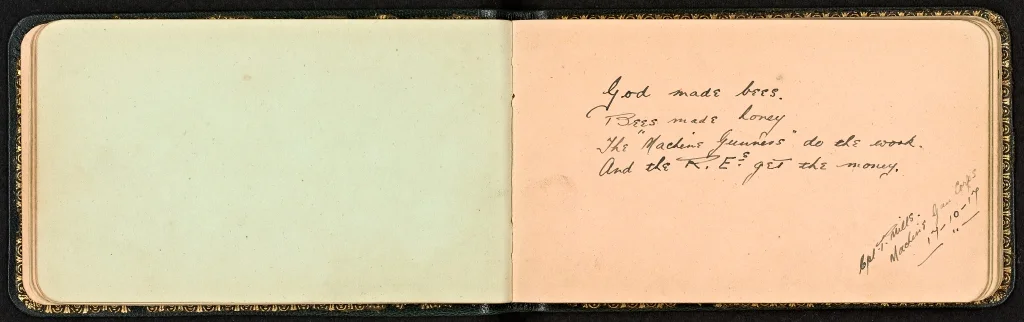 God made bees.
Bees made honey
The "Machine Gunners" do the work.
And the R. Es. get the money.
Cpl. T. Mills.
Machine Gun Corps
17-10-17